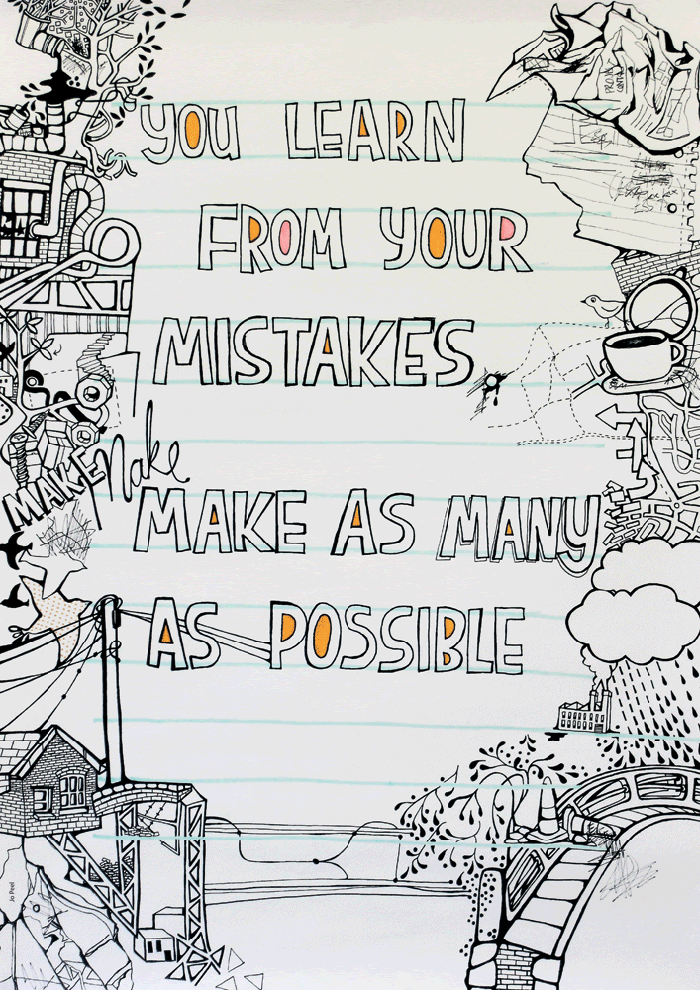 YOU LEARN
FROM YOUR
MISTAKES.
MAKE
Make
MAKE AS MANY
AS POSSIBLE
Jo Peel